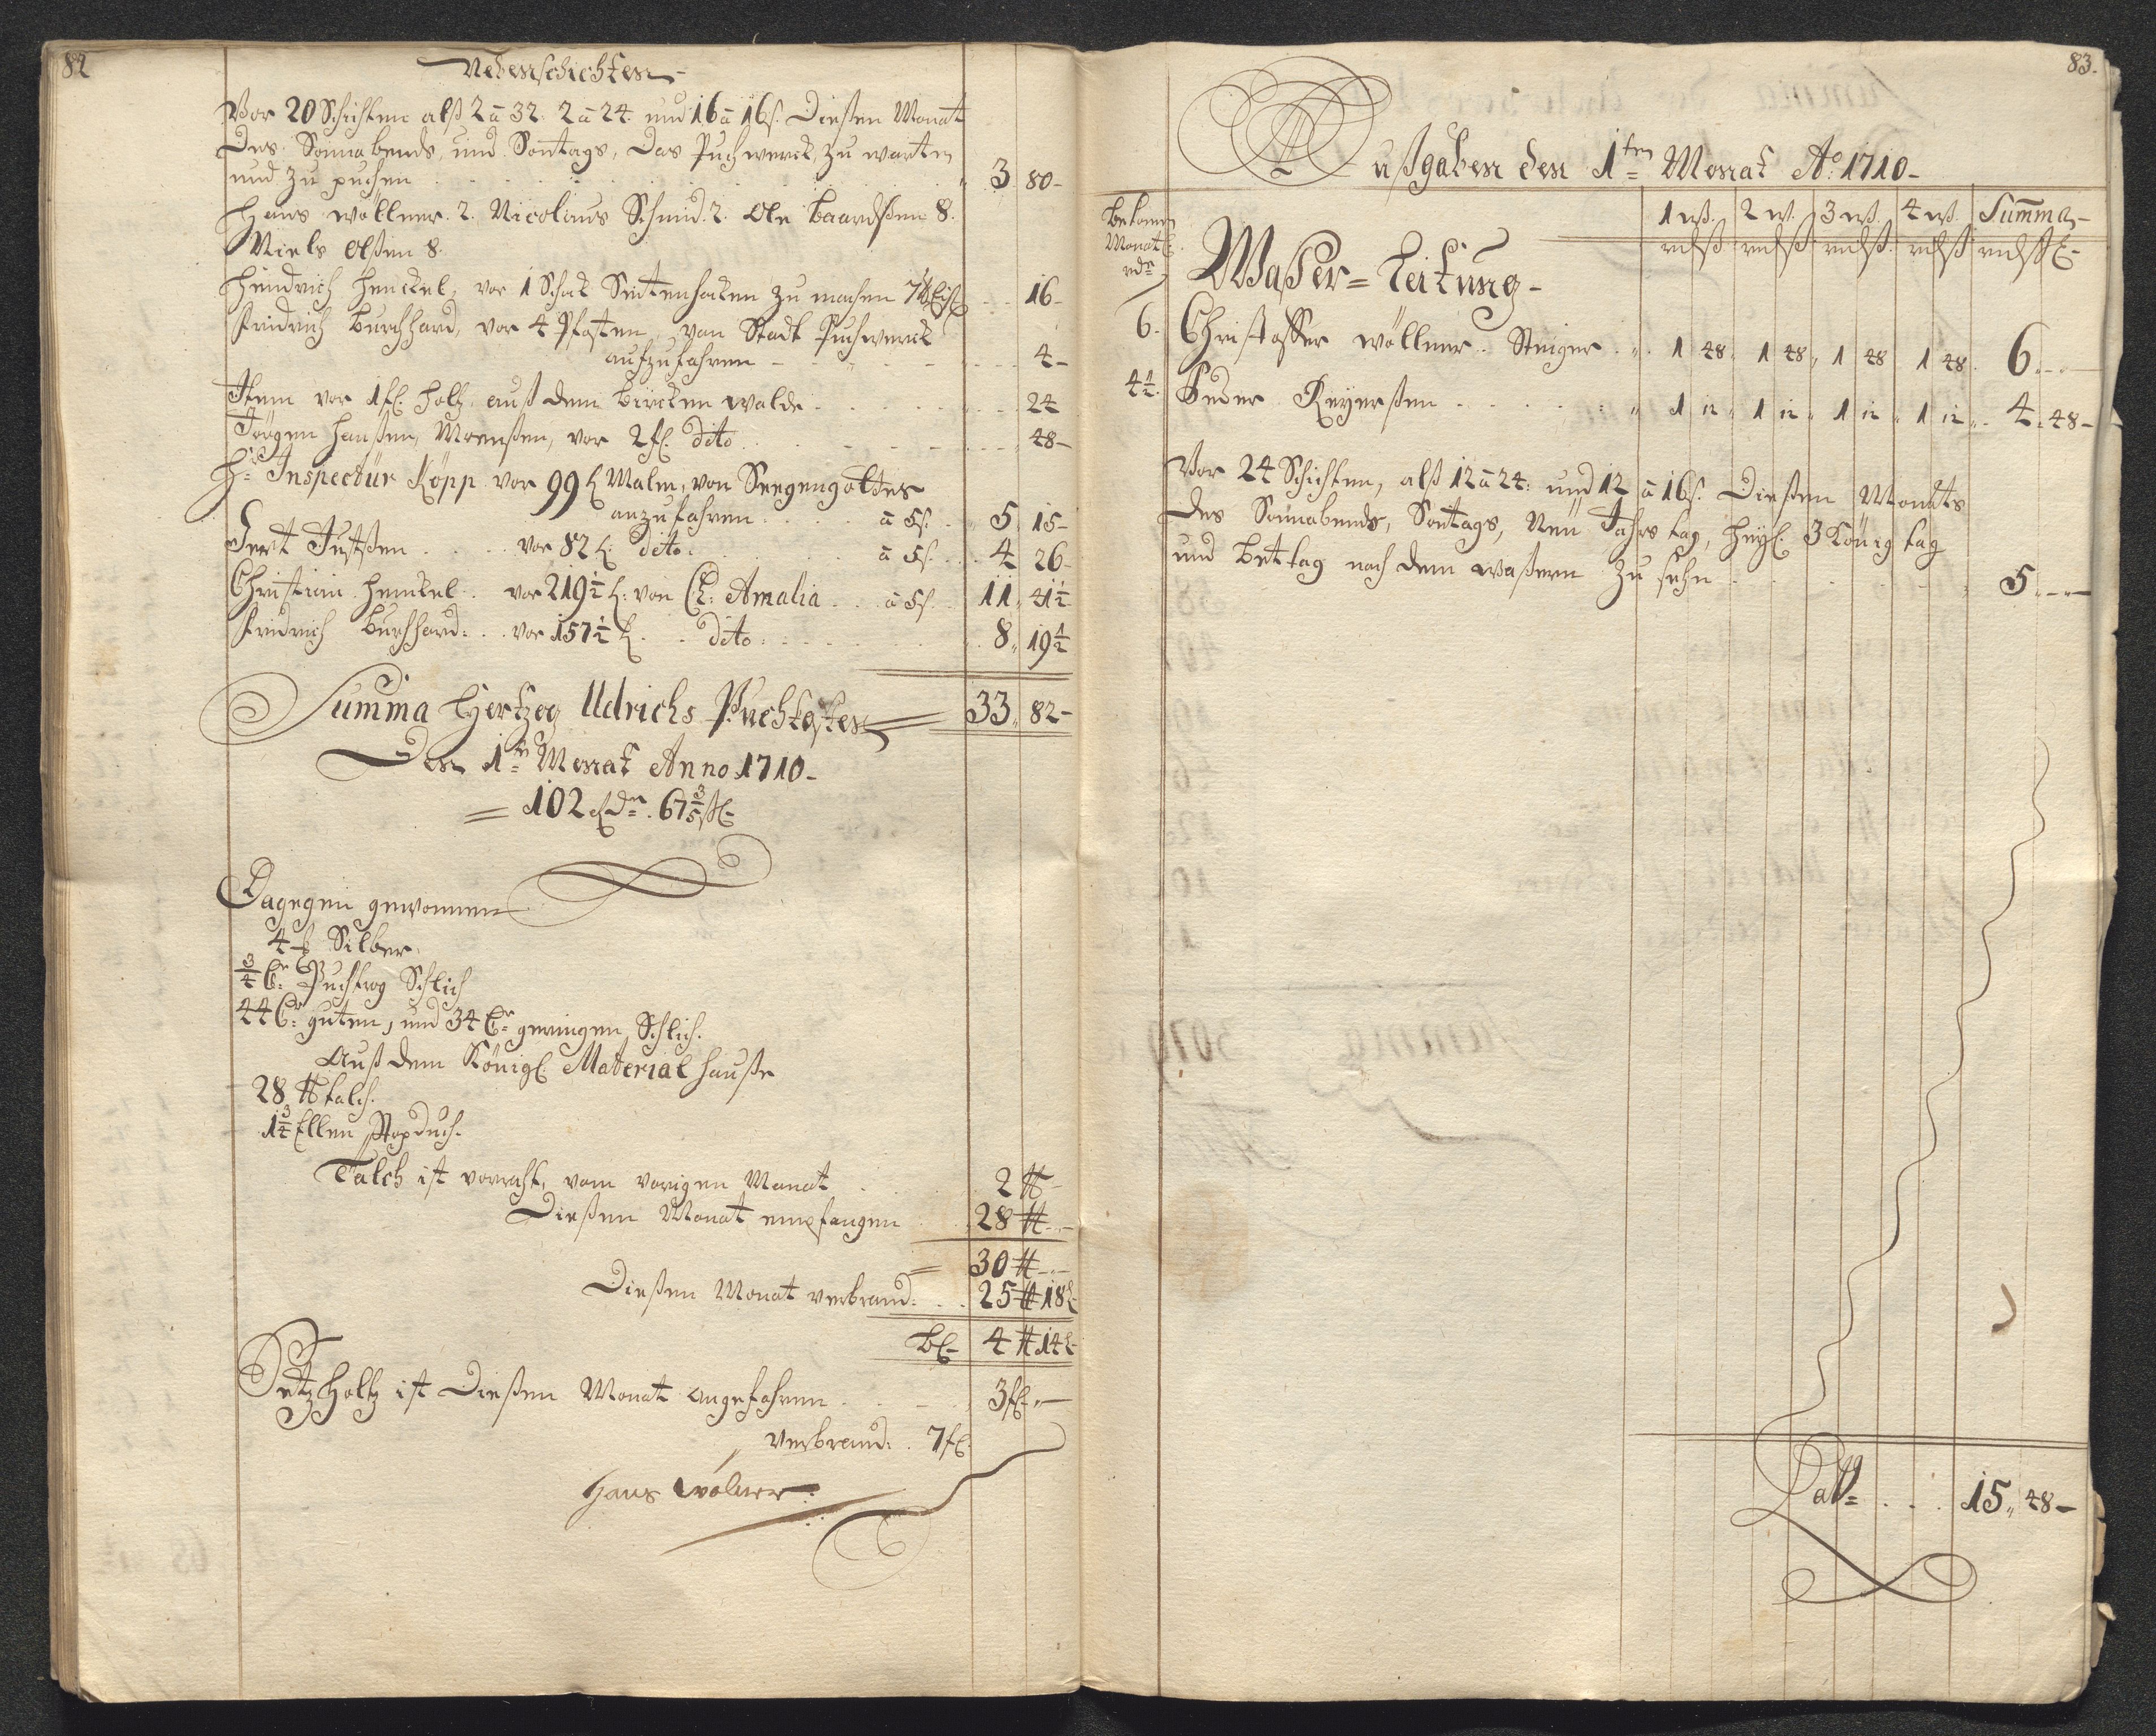 82
Nebenschichten
Vor 20 Schichten alß 2 â 32. 2 â 24. und 16 â 16 s. Dießen Monat
Des Sonnabends, und Sontags, Das Puchwerck, zu warten
und zu puchen . . . . . 3 80-
Hans wöllner. 2. Nicolaus Schmid. 2. Ole Baardßen 8.
Niels Olßen 8.
Heindrich Henckel, vor 1 Schock zu machen . . 16-
Fridrich Burchhard, vor 4 Pfosten, von Stadt Puchwerck
aufzufahren - . . . 4-
Item vor 1 fl. Holz auß dem Bircken walde . . . . 24
Jörgen Hanßen, Moenßen, vor 2 fl. dito . . . . 48-
Hr: Inspectür Köpp vor 99 Malm, von Seegengottes
anzufahren . . . . â 5 s. . 5 15-
Gert Justßen . . . . vor 82 dito . . . â 5 s. . 4 26-
Christian Henckel . . vor 219½ von Ch: Amalia . . â 5 s. 11 41½
Fridrich Burchhard: . . vor 157½ . . dito: . . . 8 19½
Summa Hertzog Uldrichs Puchkosten 33 82-
Den 1te Monat Anno 1710-
= 102 Rdr. 67⅗ s
Dagegen gewonnen
4 Silber
¾ Cr: Puchtrog Schlich
44 Cr: guten, und 34 Cr: geringen Schlich.
Auß dem Königl Material Hauße
28 ℔ Talch.
1¾ Ellen Stopduch.
Talch ist vorraht, vom vorigen Monat . . 2 ℔-
Dießen Monat empfangen . . 28 ℔--
= 30 ℔--
Dießen Monat verbrand: . . 25 ℔ 18
Bl- 4 ℔ 14
Setzholtz ist Dießen Monat angefahren . . . . 3 fl --
Verbrand: . 7 fl.
Hans Wölner
83.
Außgaben den 1ten Monat Ao: 1710-
Bekomen Monatl. rdr
1 wß. 2 wß. 3 wß. 4 wß. Summa-
rdß rdß rdß. rdß rdß
Waßer=Leitung-
6. Christoffer wöllner. Steiger . . 1 48. 1 48, 1 48 1 48. 6 --
4½. Peder Reyerßen . . . . . . 1 12 1 12 1 12 1 12 . 4. 48-
Vor 24 Schichten, alß 12 â 24: und 12 â 16 s. Dießen Monats
Des Sonnabends, Sontags, Neü Jahrs tag, Heyl. 3 König tag
und Bettag nach dem waßern zu sehn . . . . . 5 --
Latt= . . . 15, 48-